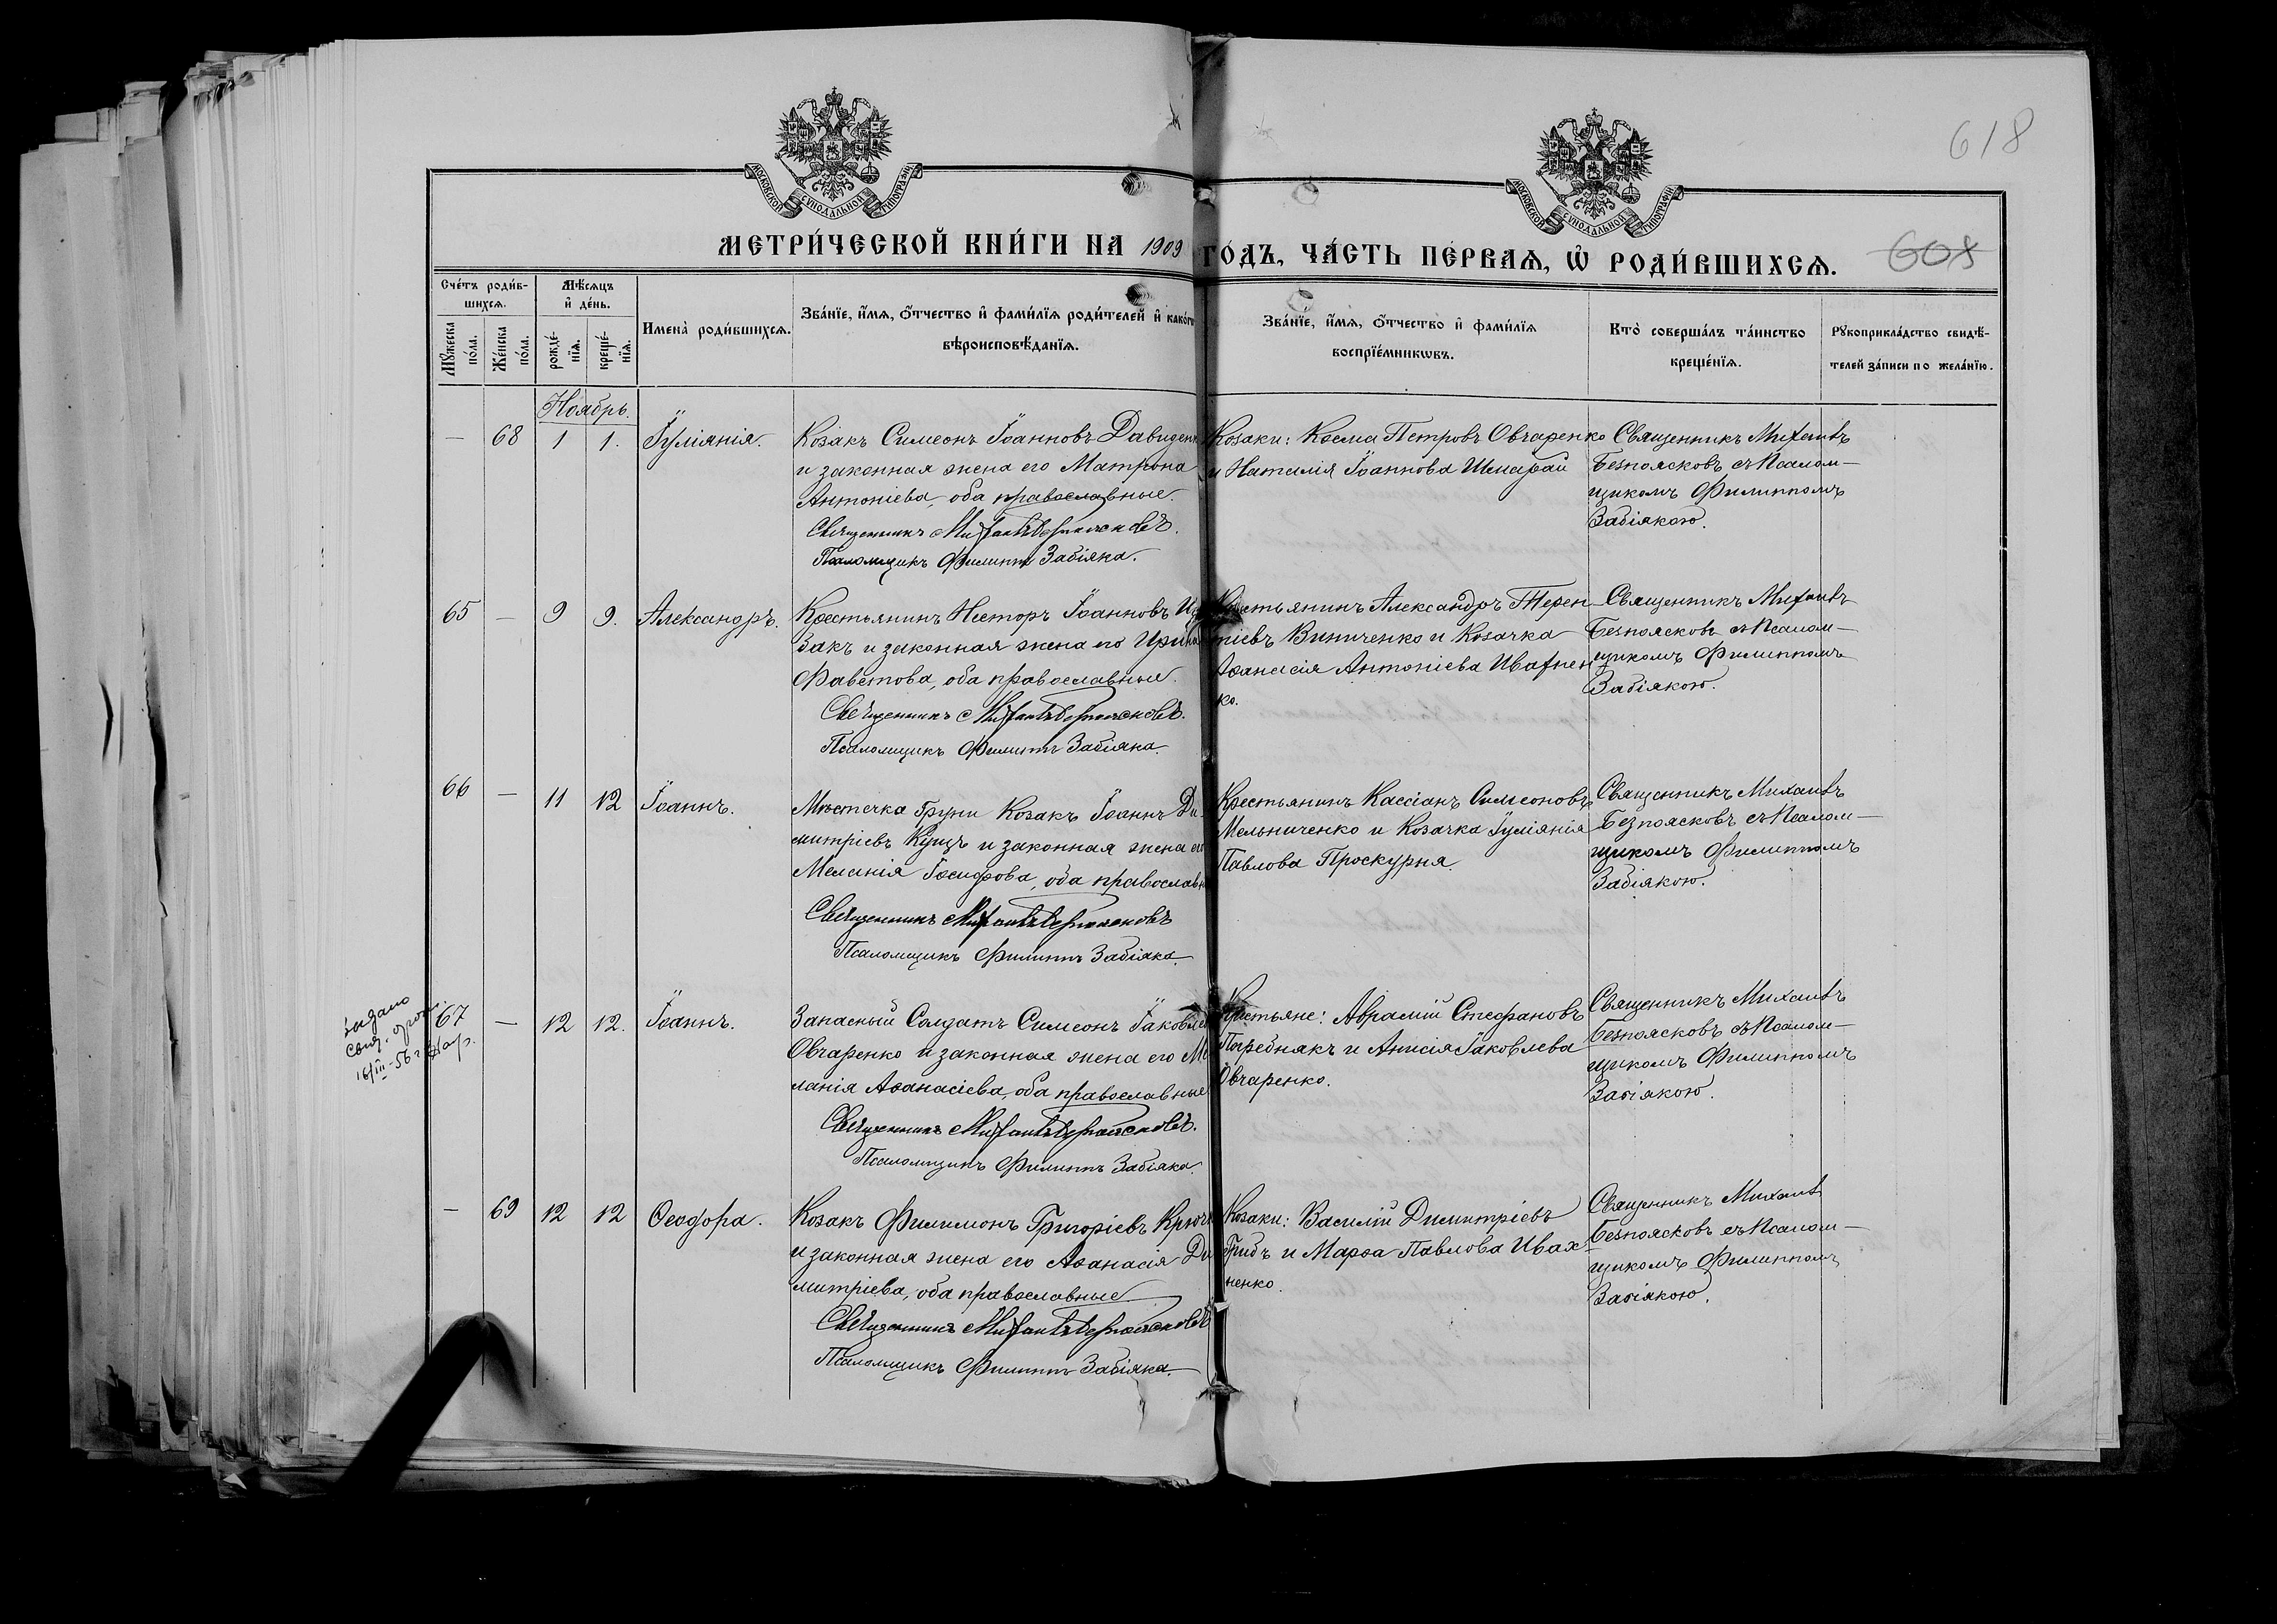 618
МОСКОВСКОЙ СУНОДАЛЬНОЙ ТИПОГРАФІИ
МОСКОВСКОЙ СУНОДАЛЬНОЙ ТИПОГРАФІИ
МЕТРИ́ЧЕСКОЙ КНИ́ГИ НА 1909 ГО́ДЪ, ЧА́СТЬ ПЕ́РВАѦ, Ѡ҆ РОДИ́ВШИХСѦ.
Сче́тъ роди́в-
шихсѧ.
Мꙋ́жеска по́ла.
Же́нска по́ла.
Мѣ́сѧцъ
и҆ де́нь.
рожде́-
нїѧ.
креще́-
нїѧ.
Имена̀ роди́вшихсѧ.
Зва́нїе, и҆́мѧ, ѻ҆́тчество и҆ фами́лїѧ роди́телей и҆ како́гѡ
вѣроисповѣ́данїѧ.
Зва́нїе, и҆́мѧ, ѻ҆́тчество и҆ фами́лїѧ
воспрїе́мникѡвъ.
Кто̀ соверша́лъ та́инство
креще́нїѧ.
Рꙋкоприкла́дство свидѣ́-
телей за́писи по жела́нїю.
Ноябрь.
— 68 1 1. Іуліанія.
Козакъ Симеонъ Іоанновъ Давиденко
и законная жена его Матрона
Антоніева, оба православные.
Священникъ Михаилъ Безпоясковъ.
Псаломщикъ Филиппъ Забіяка.
Козаки: Косма Петровъ Овчаренко
и Наталія Іоаннова Шмарай
Священникъ Михаилъ
Безпоясковъ съ Псалом-
щикомъ Филиппомъ
Забіякою.
65 — 9 9. Александръ.
Крестьянинъ Несторъ Іоанновъ
закъ и законная жена его Ирина
Фавстова, оба православные.
Священникъ Михаилъ Безпоясковъ.
Псаломщикъ Филиппъ Забіяка.
Крестьянинъ Александръ Терен
тіевъ Виниченко и Козачка
Аѳанасія Антоніева Ивахнен
ко.
Священникъ Михаилъ
Безпоясковъ съ Псалом-
щикомъ Филиппомъ
Забіякою.
66 — 11 12 Іоаннъ.
Мѣстечка Груни Козакъ Іоаннъ Ди
митріевъ Куцъ и законная жена его
Меланія Іосифова, оба православн
Священникъ Михаилъ Безпоясковъ
Псаломщикъ Филиппъ Забіяка.
Крестьянинъ Кассіанъ Симеоновъ
Мельниченко и Козачка Іуліанія
Павлова Проскурня.
Священникъ Михаилъ
Безпоясковъ съ Псалом-
щикомъ Филиппомъ
Забіякою.
16/III-56 г.
67 — 12 12. Іоаннъ.
Запасный Солдатъ Симеонъ Іаковлев
Овчаренко и законная жена его Ме
ланія Аѳанасіева, оба православные
Священникъ Михаилъ Безпоясковъ.
Псаломщикъ Филиппъ Забіяка.
Крестьяне: Аврамій Стефановъ
Погребнякъ и Анисія Іаковлева
Овчаренко.
Священникъ Михаилъ
Безпоясковъ съ Псалом-
щикомъ Филиппомъ
Забіякою.
— 69 12 12 Ѳеодора.
Козакъ Филимонъ Григоріевъ Крючк
и законная жена его Аѳанасія Ди
митріева, оба православные
Священникъ Михаилъ Безпоясковъ
Псаломщикъ Филиппъ Забіяка.
Козаки: Василій Димитріевъ
Грибъ и Марѳа Павлова Ивах-
ненко.
Священникъ Михаилъ
Безпоясковъ съ Псалом-
щикомъ Филиппомъ
Забіякою.